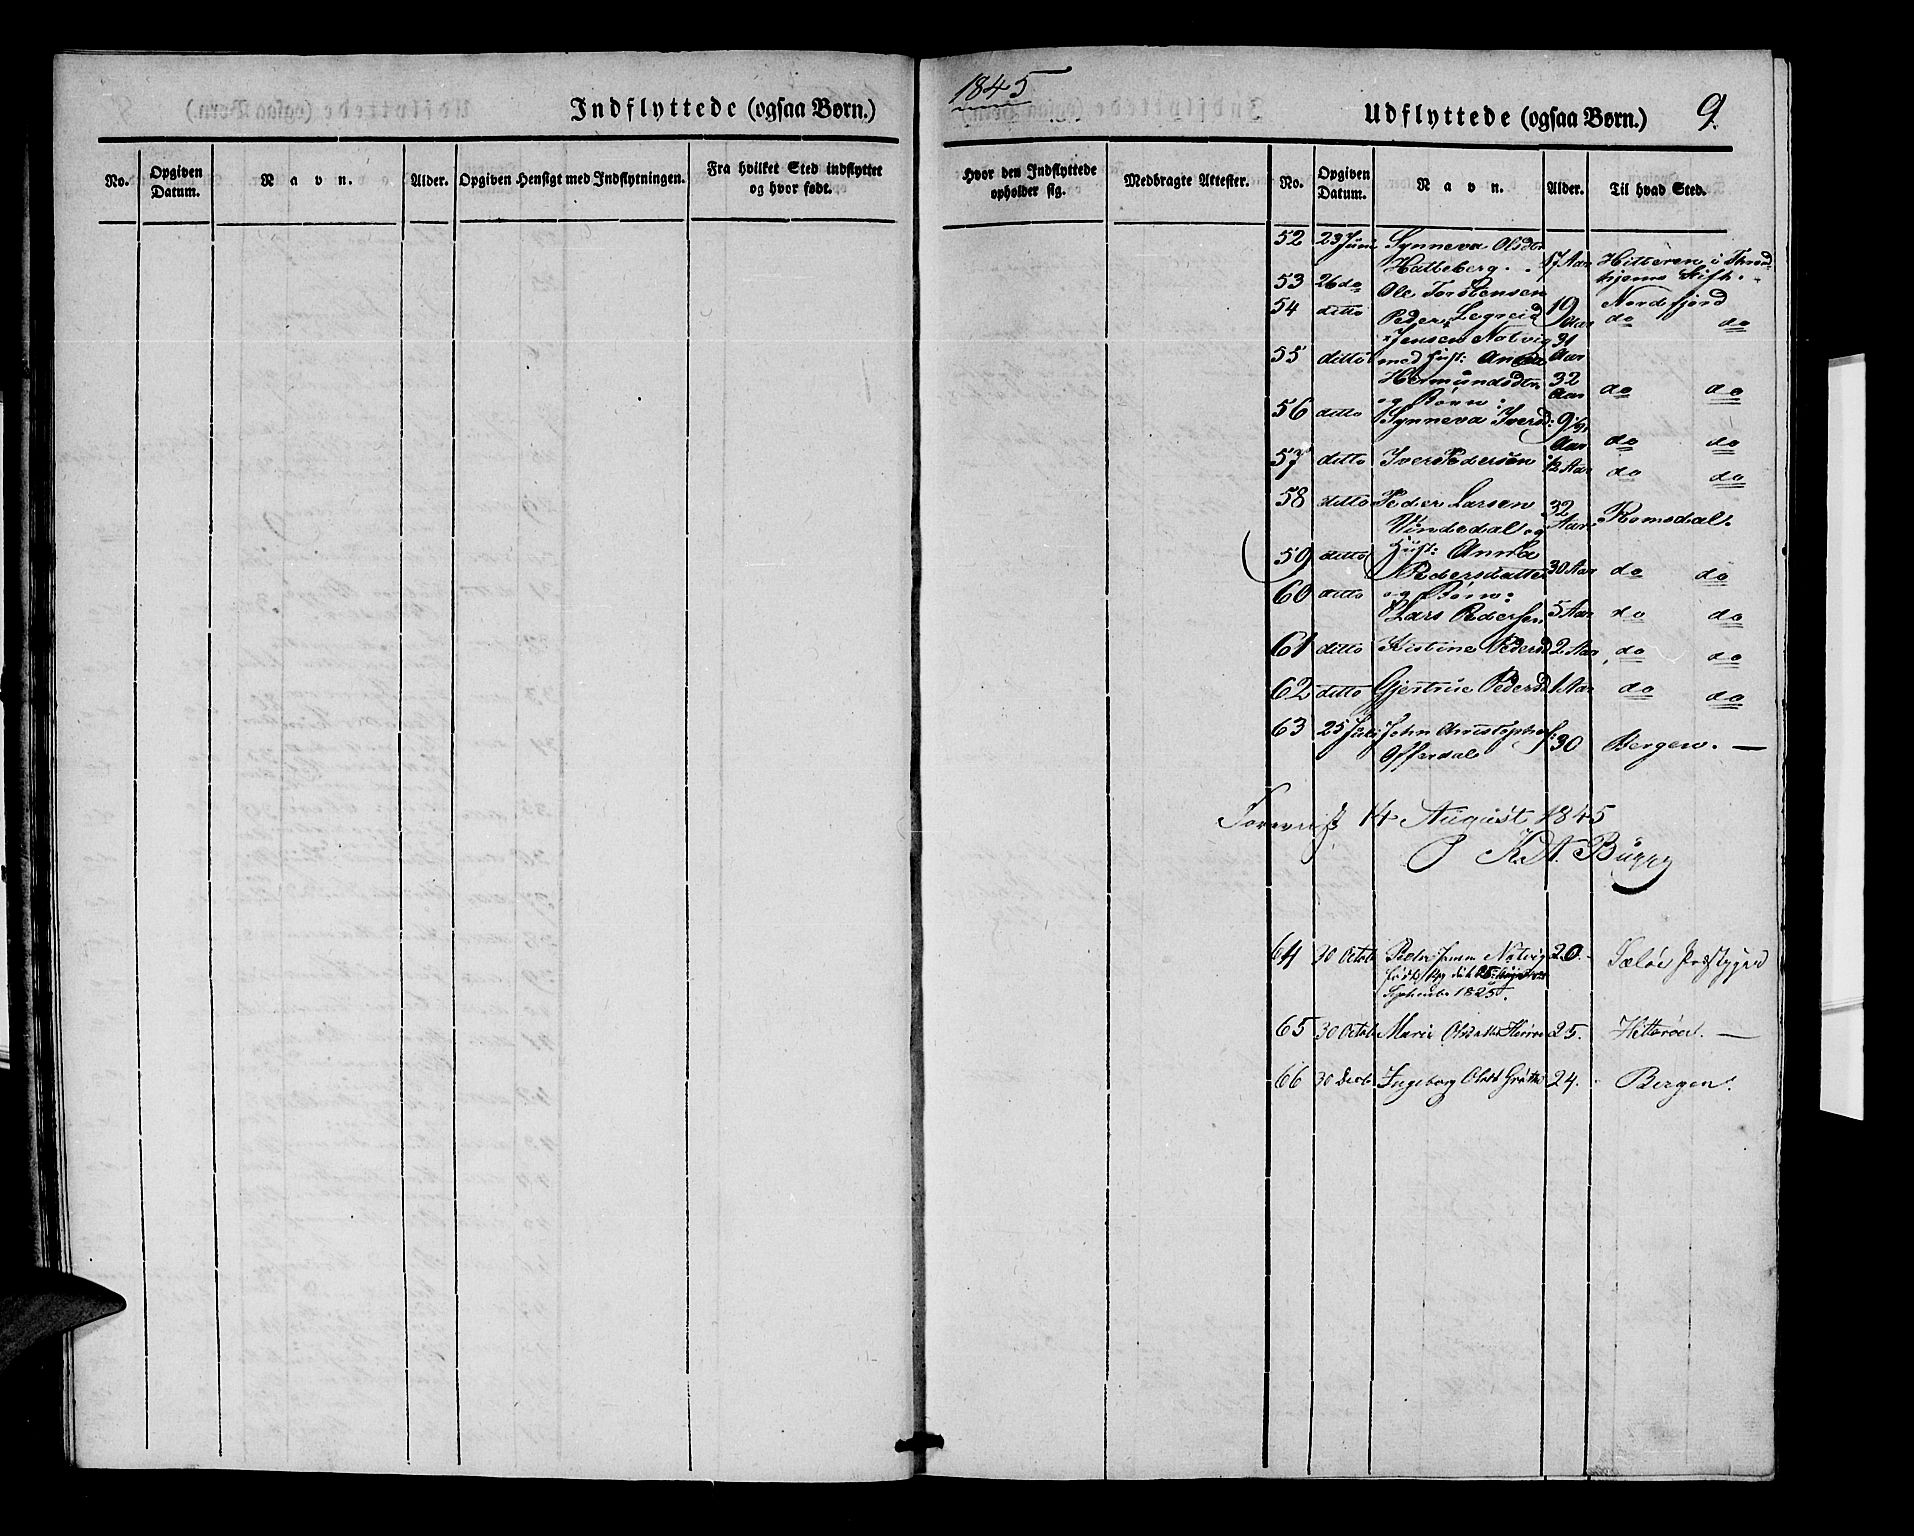 Indflyttede (ogsaa Børn.)
No. Opgiven Datum. Navn. Alder. Opgiven Hensigt med Indflytningen. Fra hvilket Sted indflyttet og hvor født.
1845
Udflyttede (ogsaa Børn.) 9.
Hvor den Indflyttede opholder sig. Medbragte Attester. No. Opgiven Datum. Navn. Alder. Til hvad Sted.
52 23 Juni Synneva Olsdtr
Hatleberg 17 Aar Hitteren i Thrond-
hjems Stift.
53 26 do Ole Torstensen
Legreid 19 Aar Nordfjord
54 ditto Peder
Jensen Notvig 31 Aar do do
55 ditto med Hust: Anna
Hermundsdtr 32 Aar do do
og Børn:
56 ditto Synneva Iversd: 9 Aar do do
57 ditto Iver Pedersen 12 Aar do do
58 ditto Peder Larsen
Vindedal og 32 Aar Romsdal
59 ditto Hust: Anna
Pedersdatter 30 Aar do do
60 ditto og Børn:
Lars Pedersen 5 Aar do do
61 ditto Kistine Pedersd 2 Aar do do
62 ditto Gjertrue Pedersd 1 Aar do do
63 25 Juli John Christophers:
Offerdal 30 Bergen. —
Foreviist 14 August 1845
K. A. Bugge
64 30 Octob Peder Jensen Notvig 20. Sæløe Præstegjeld
født
September 1825.
65 30 Octob Marie Olsdatter 25. Hitterøen. —
66 30 Decb Ingeborg Olsd 24. Bergen.